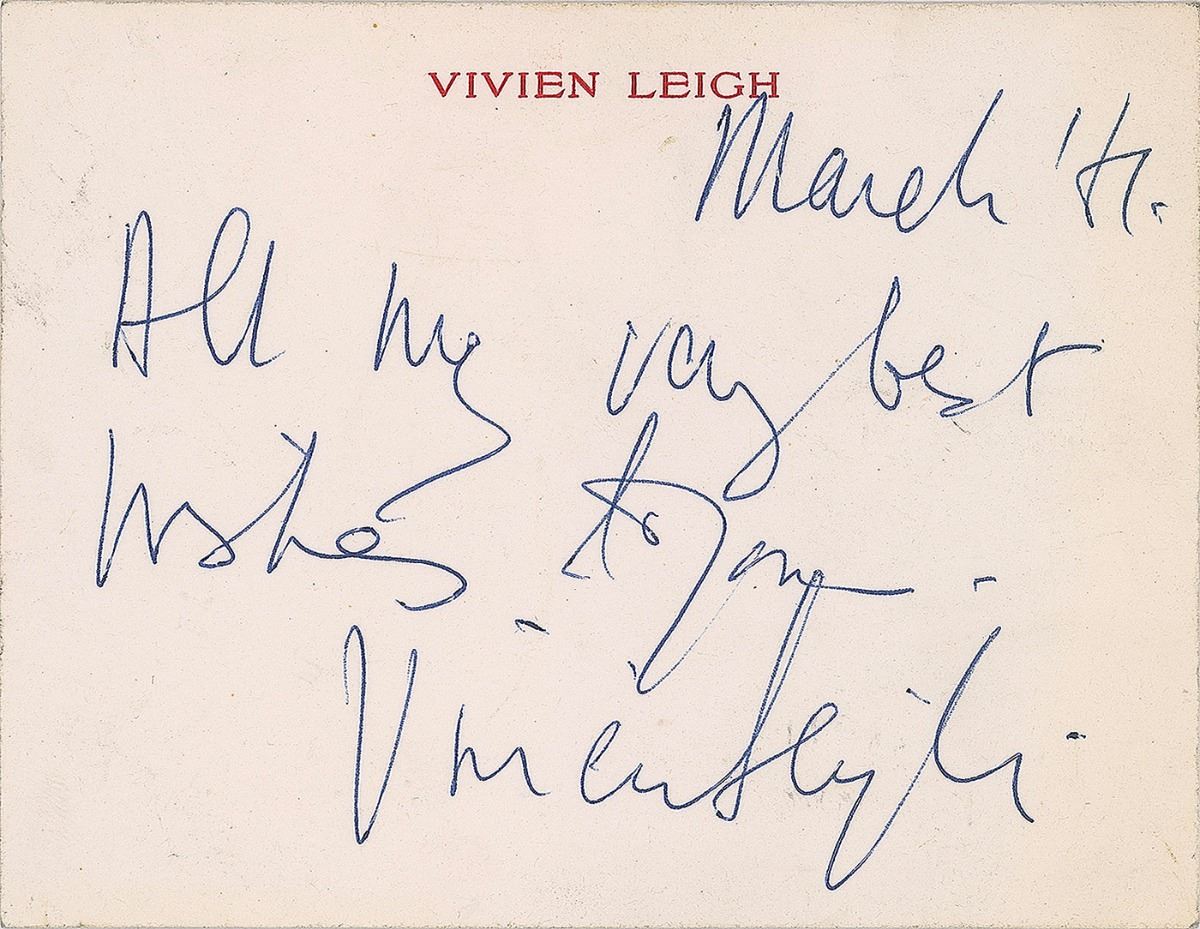 VIVIEN LEIGH
March
All my very best
wishes to you -
Vivien Leigh.